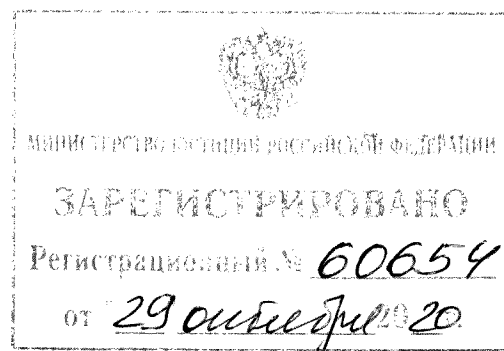 МИНИСТЕРСТВО ЮСТИЦИИ РОССИЙСКОЙ ФЕДЕРАЦИИ
ЗАРЕГИСТРИРОВАНО
Регистрационный № 60654
от "29 октября 2020